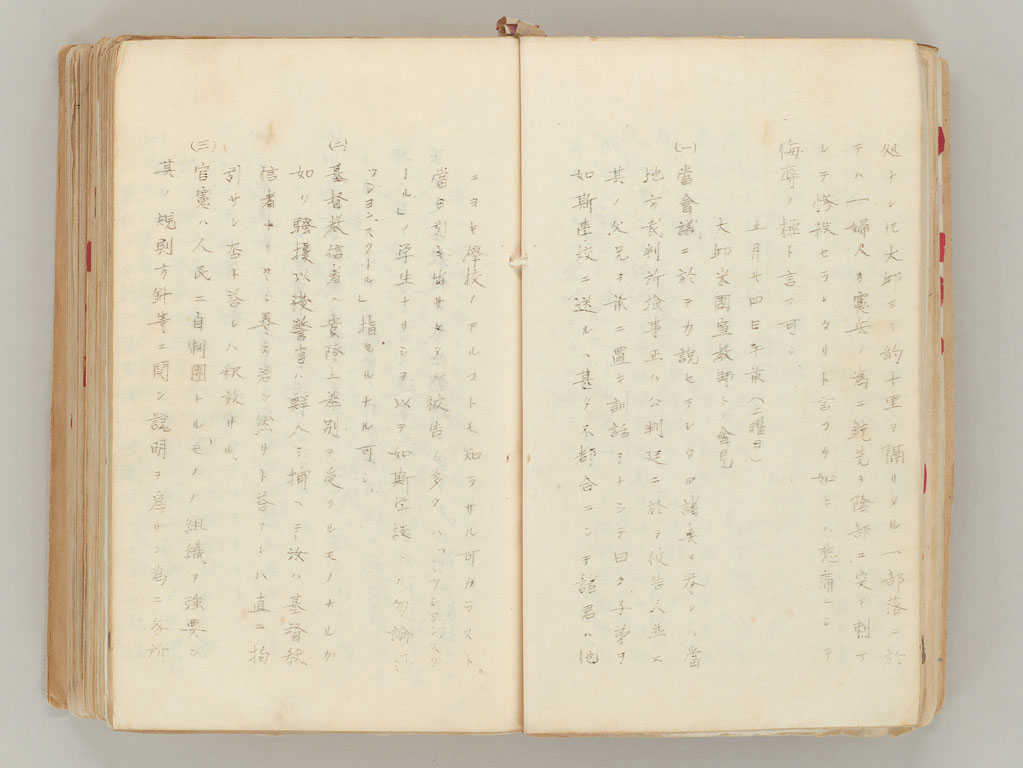 処ナシ此大邱ヨリ約十里ヲ隔リタル一部落ニ於
テハ一婦人カ憲兵ノ為ニ銃先ヲ陰部ニ突キ刺サ
レテ惨殺セラレタリト言フカ如キハ悲痛ニシテ
侮辱ノ極ト言フ可シ
五月廿四日午後(土曜日)
大邱米國宣教師ト會見
(一)當會議ニ於テカ説セラレタル諸夫ヲ举レハ當
地方裁判所検事正ハ公判廷ニ於テ被告人並ニ
其ノ父兄ヲ前ニ置キ訓話ヲトシテ曰ク子弟ヲ
如斯學校ニ送ルハ甚タ不都合ニシテ諸君ハ他
ニヨキ學校ノアルコトモ知ラサル可カラスト。
當日引キ出サレタル被告ノ多クハ「ミツシヨンスク
トル」ノ学生ナリシヲ以テ如斯学校トハ勿論ミ
ツシヨン、スクトル」指セルナル可シ、
(二)基督教信者ハ實際上差別ヲ受クルモノナルカ
如リ騒擾以後警官ハ鮮人ヲ捕ヘテ汝ハ基督教
信者ナリヤト尋ネ若シ然リト答フレハ直ニ拘
引サレ否ト答レハ釈放サル、
(三)官憲ハ人民ニ自制團トルモノノ組織ヲ強要シ
其ノ規則方針等ニ関シ説明ヲ為サン為ニ各所